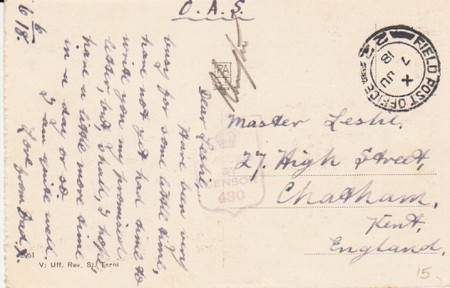 O. A. S.
6
6 18.
Dear Leslie,
Have been very
busy for some little time,
have not yet had time to
write you my promised
letter, but shall, I hope,
have a little more time
in a day or so.
I am quite well.
Love from Dad.
FIELD POST OFFICE
7 JU
18
Master Leslie.
27, High Street,
Chatham,
Kent,
England.
CENSOR
430
V: Uff. Rev. St. Terni
15